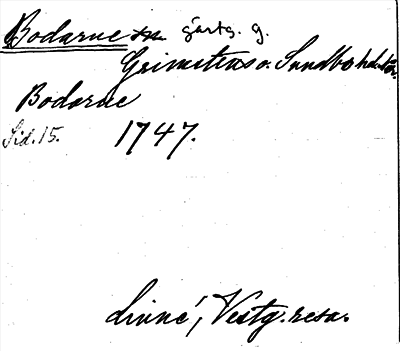 Bodarne gårtg. g.
Grimetens o. Sundbo hdr.
Bodarne
Sid. 15. 1747.
Linné, Vestg. resa.